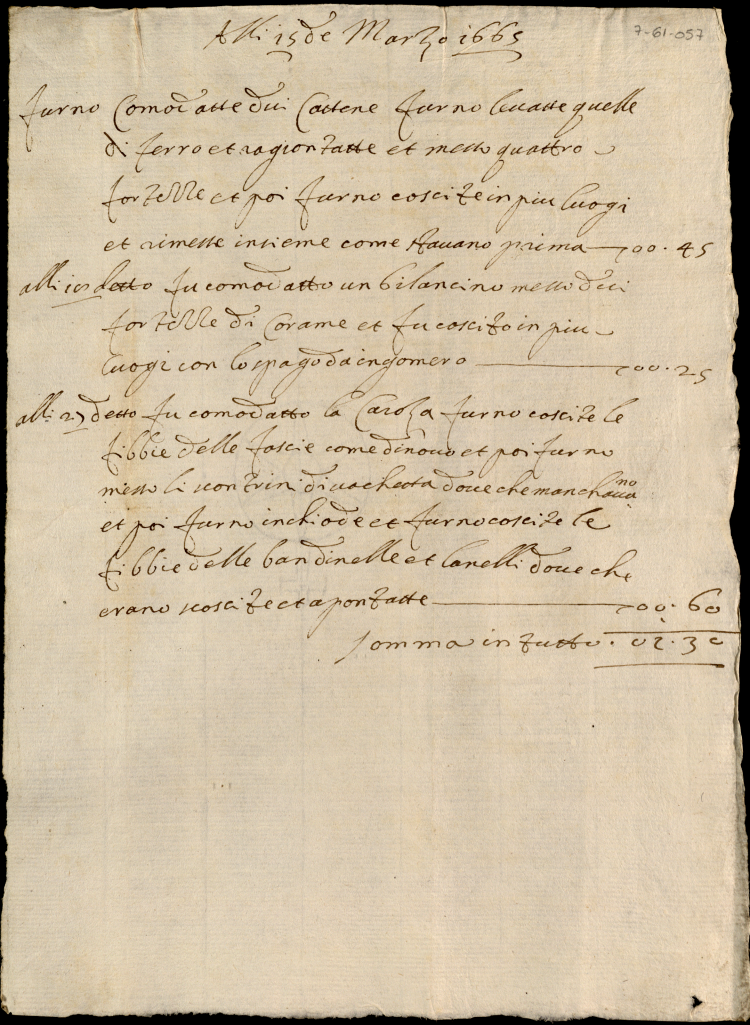 Alli 15 de Marzo 1665
7-61-057
furno Comodatte dui Cattene furno leuatte quelle
di ferro et ragiontatte et messo quattro
fortezze et poi furno coscite in piu luogi
et rimesse insieme come stauano prima 00.45
alli detto fu comodatto un bilancino messo dui
fortezze di Corame et fu coscito in piu
luogi con lo spago da ingomero 00.25
alli 27 detto fu comodatto la Caroza furno coscite le
fibbie delle fascie come di nouo et poi furno
messo li scontrini di uacheta doue che manchauano
et poi furno inchiode et furno coscite le
fibbie delle bandinelle et lanelli doue che
erano scoscite et apontatte 00.60
somma in tutto . 02.30